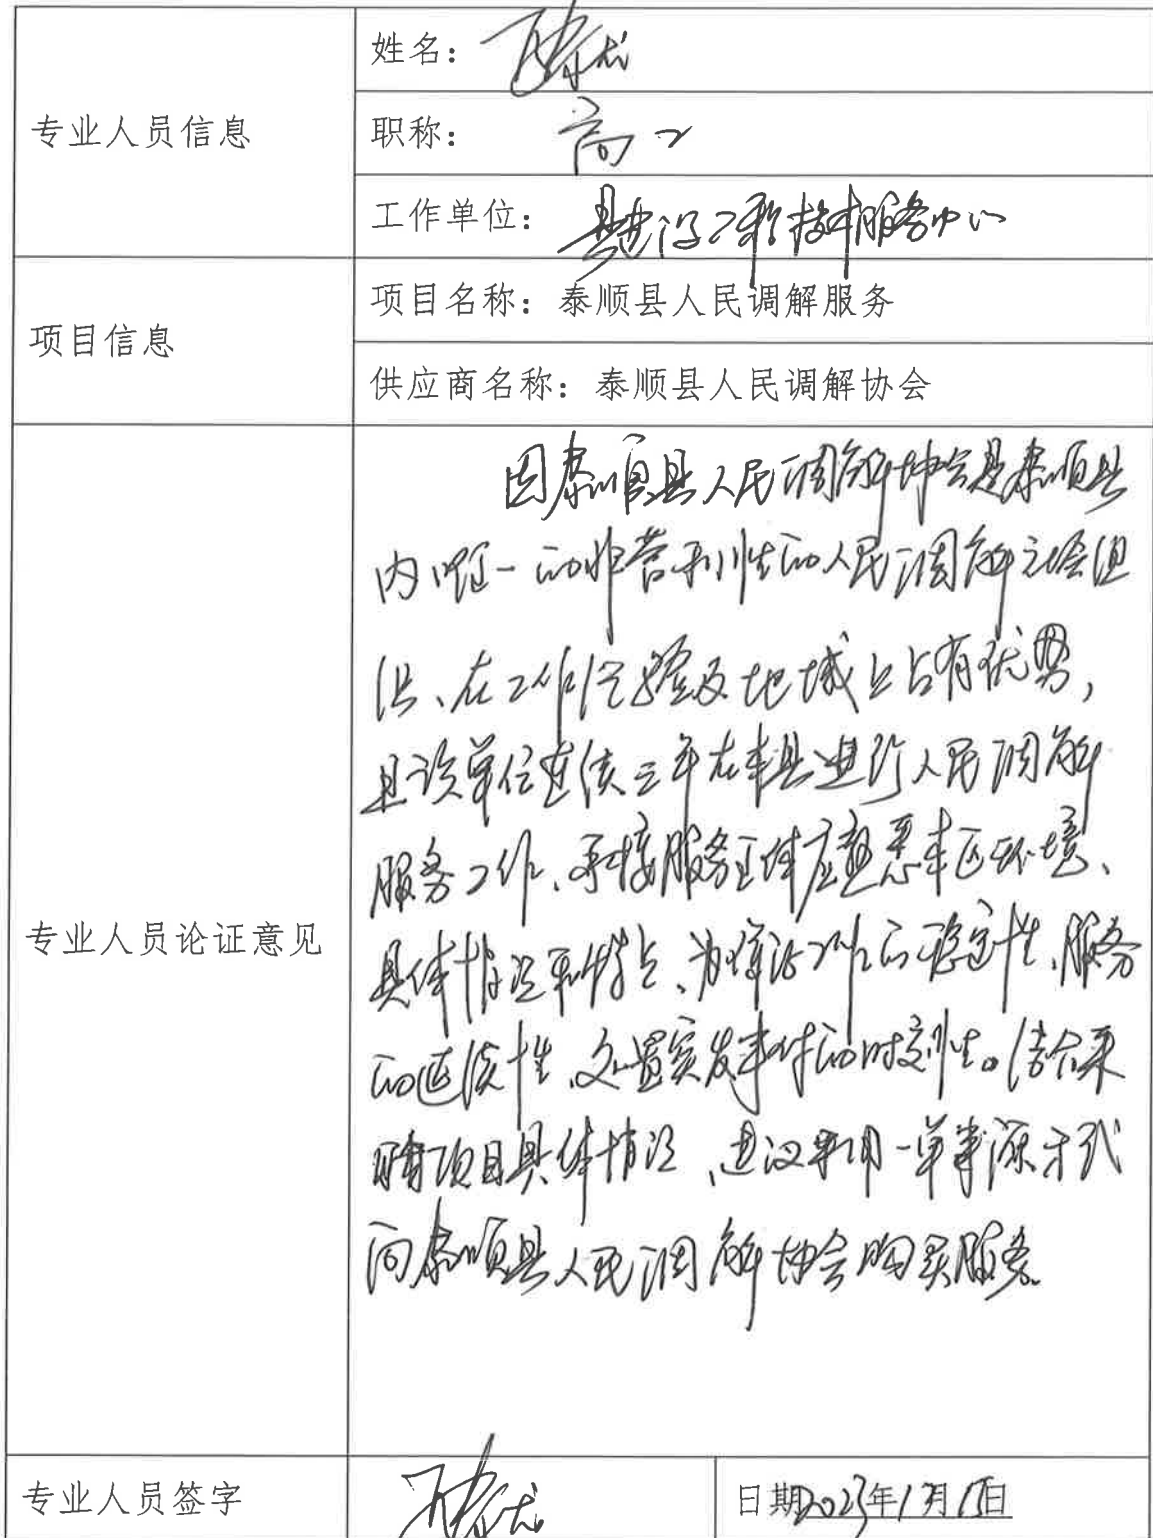 专业人员信息
姓名：
职称：高工
工作单位：县建设工程技术服务中心
项目信息
项目名称：泰顺县人民调解服务
供应商名称：泰顺县人民调解协会
专业人员论证意见
因泰顺县人民调解协会是泰顺县
内唯一的非营利性的人民调解社会组
织、在工作经验及地域上占有优势，
且该单位连续三年在本县进行人民调解
服务工作、承接服务主体应熟悉本区环境、
具体情况和特点、为保证工作的稳定性、服务
的延续性、处置突发事件的时刻性。结合采
购项目具体情况、建议采用单一来源方式
向泰顺县人民调解协会购买服务。
专业人员签字
日期2023年1月15日